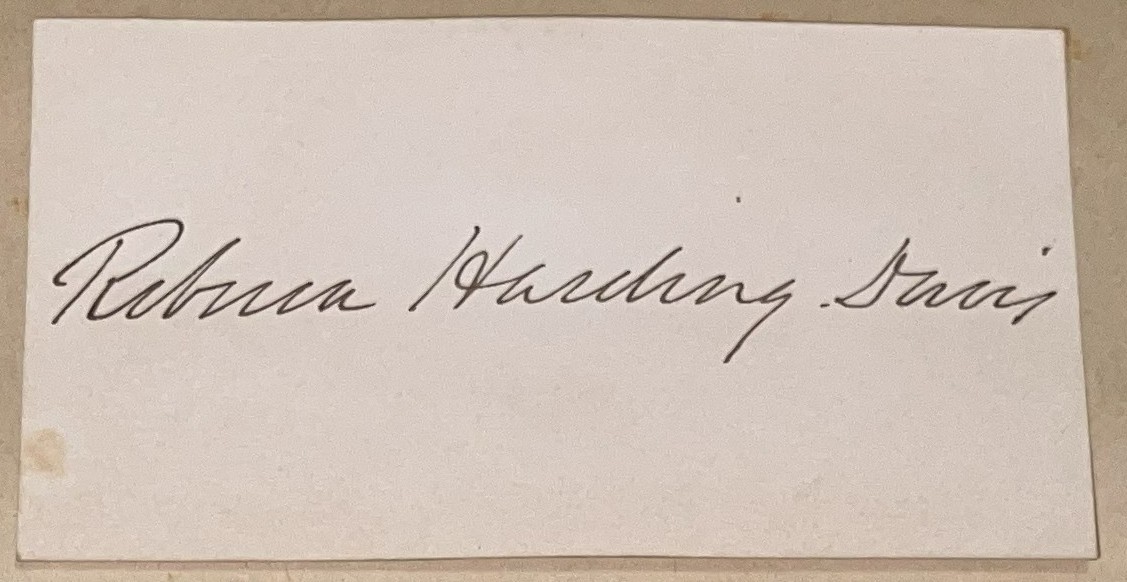 Rebecca Harding Davis